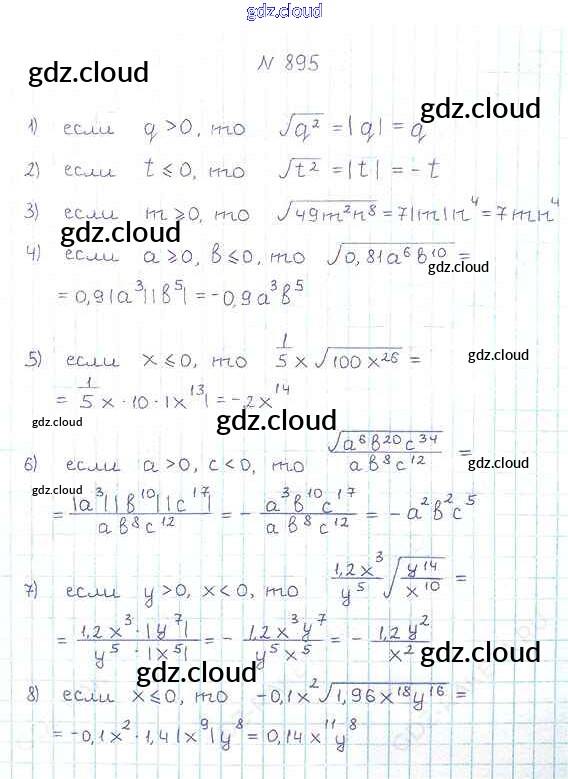 gdz.cloud
N 895
gdz.cloud
gdz.cloud
1) если q >0, то √q² = |q| = q
2) если t ≤ 0, то √t² = |t| = - t
3) если m ≥ 0, то √49m²n⁸ = 7|m|n⁴ = 7mn⁴
gdz.cloud
4) если a ≥ 0, b ≤ 0, то √0,81a⁶b¹⁰ =
gdz.cloud
= 0,9|a³||b⁵| = -0,9a³b⁵
5) если x ≤ 0, то 1/5 x √100x²⁶ =
gdz.cloud
= 1/5 x · 10 · |x¹³| = -2x¹⁴
gdz.cloud
gdz.cloud
6) если a > 0, c < 0, то √a⁶b²⁰c³⁴ / ab⁸c¹² =
gdz.cloud
gdz.cloud
= |a³||b¹⁰||c¹⁷| / ab⁸c¹² = - a³b¹⁰c¹⁷ / ab⁸c¹² = - a²b²c⁵
7) если y > 0, x < 0, то 1,2x³/y⁵ √y¹⁴/x¹⁰ =
= 1,2x³ · |y⁷| / y⁵ · |x⁵| = - 1,2x³y⁷ / y⁵x⁵ = - 1,2y² / x²
gdz.cloud
8) если x ≤ 0, то -0,1x² √1,96x¹⁸y¹⁶ =
= -0,1x² · 1,4|x⁹|y⁸ = 0,14x¹¹y⁸